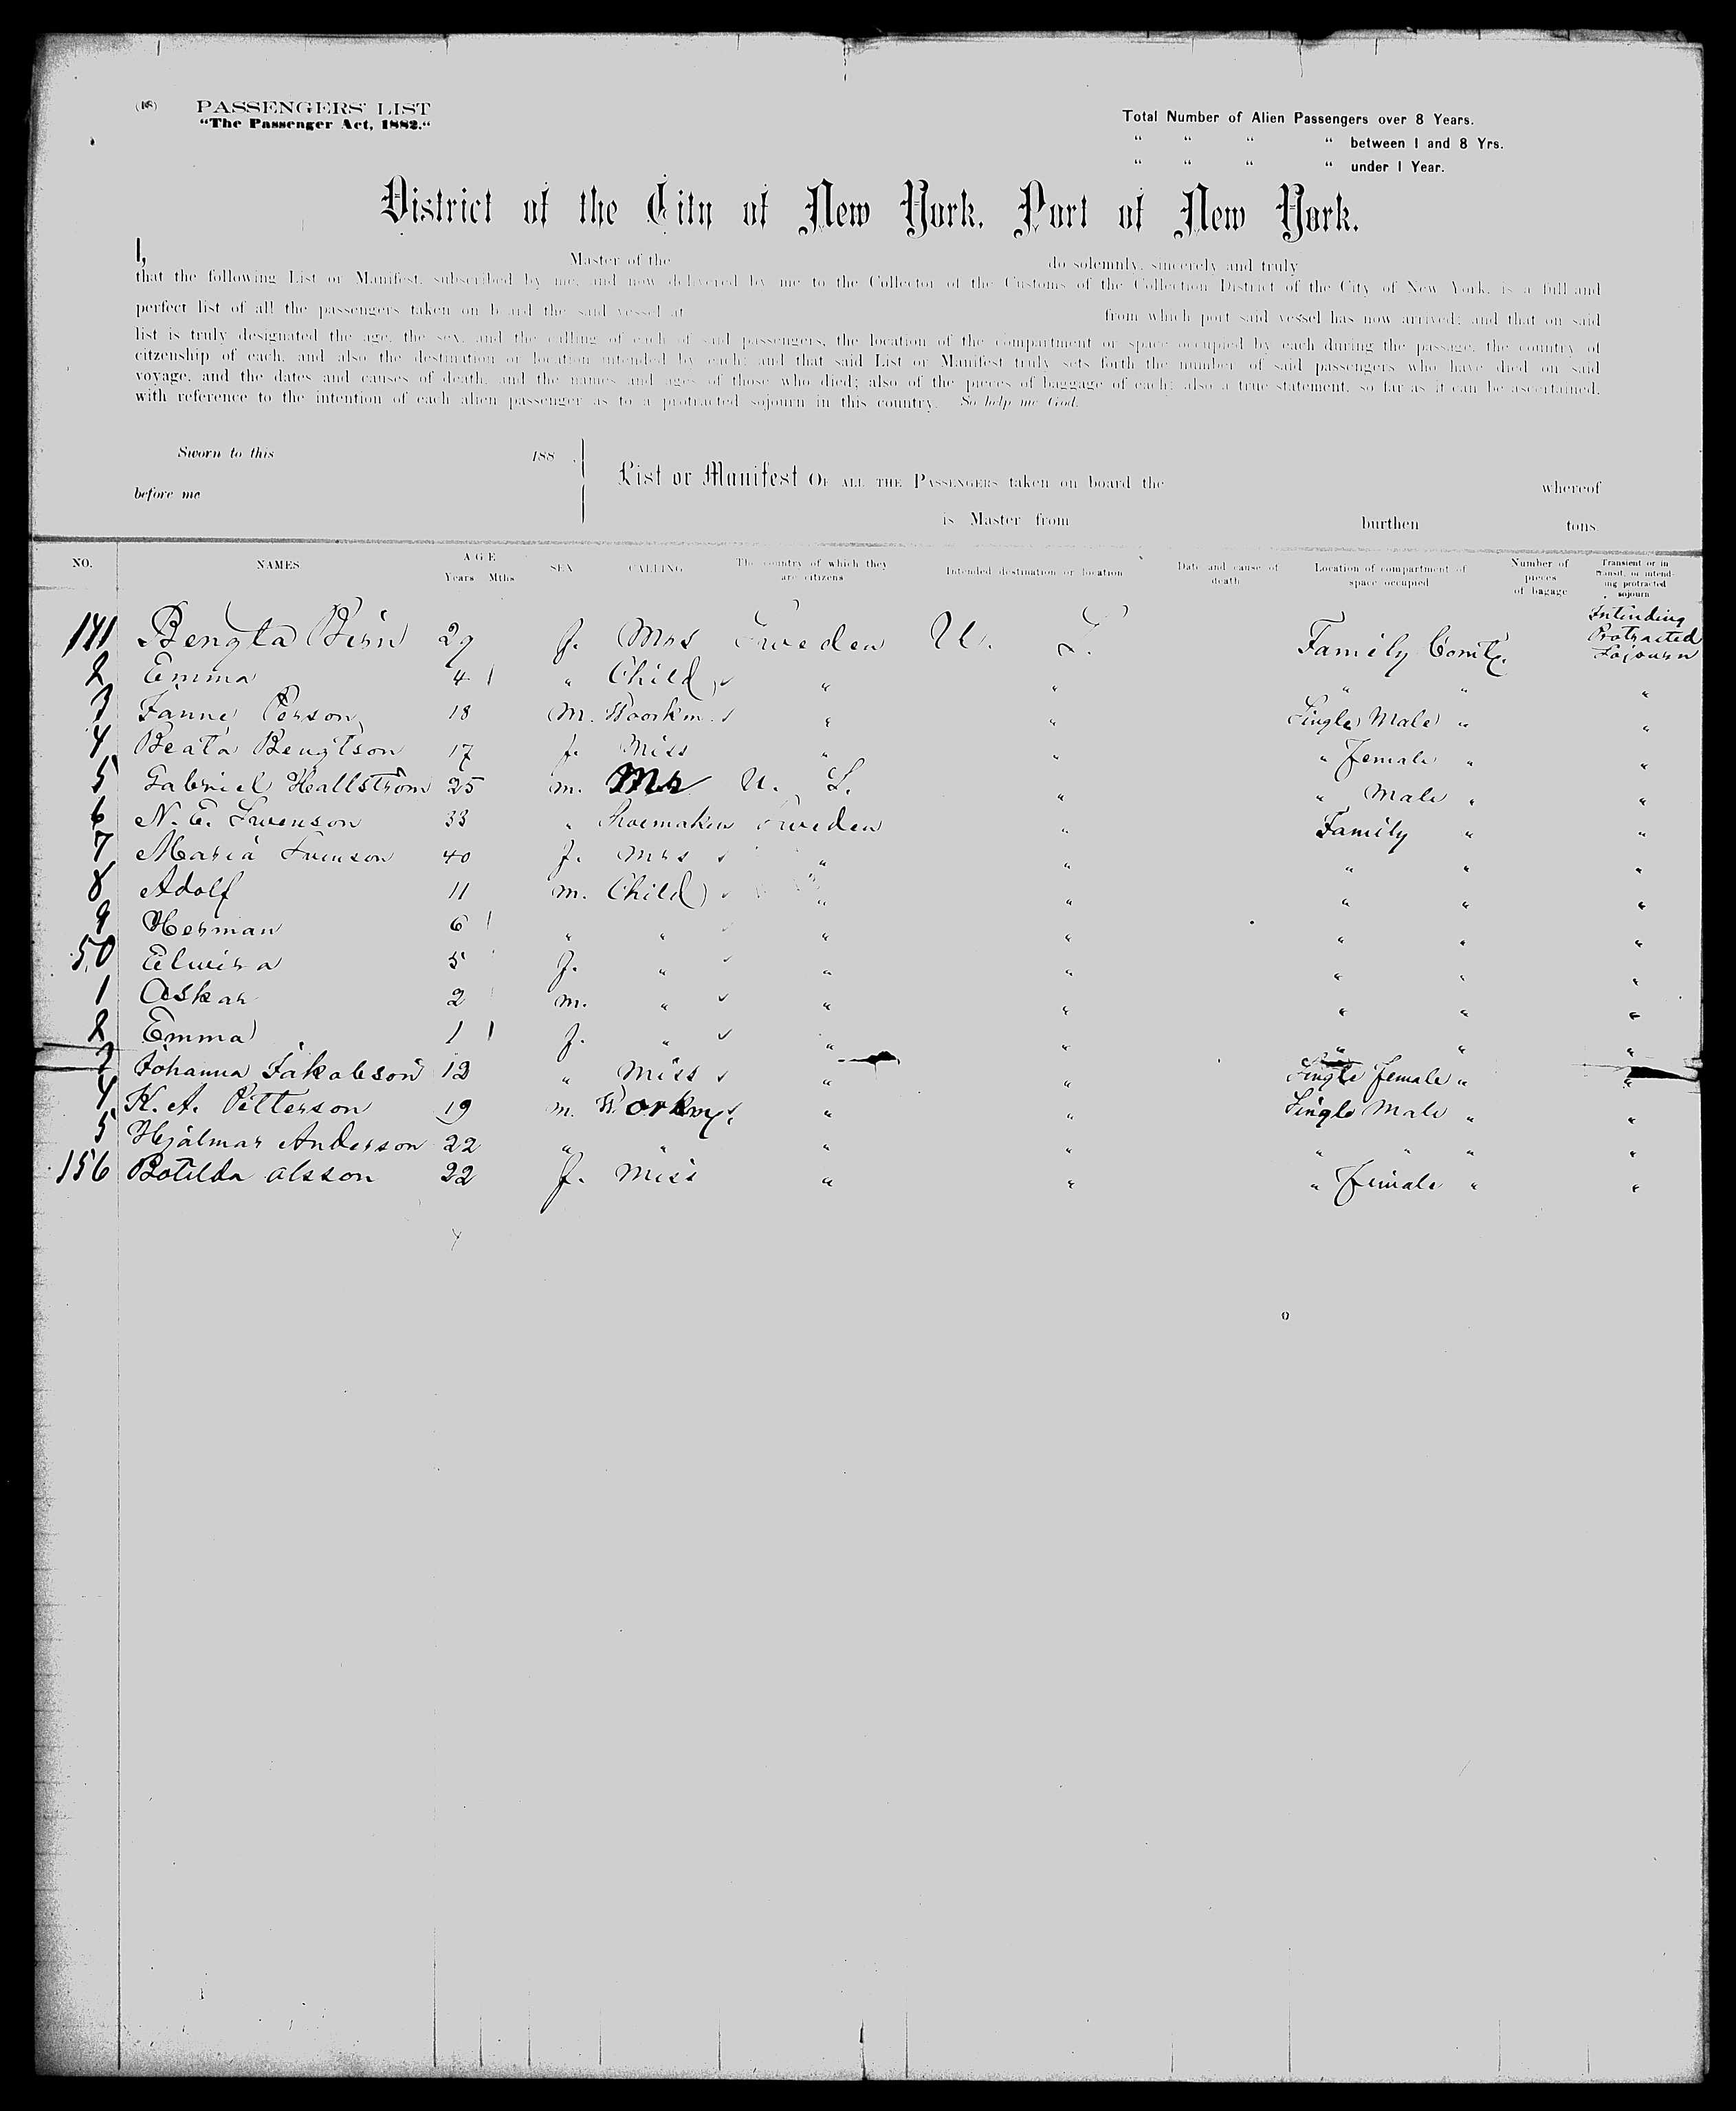 (18) PASSENGERS' LIST
"The Passenger Act, 1882."
Total Number of Alien Passengers over 8 Years.
" " " " between 1 and 8 Yrs.
" " " " under 1 Year.
District of the City of New York, Port of New York.
I, Master of the do solemnly, sincerely and truly
that the following List or Manifest, subscribed by me, and now delivered by me to the Collector of the Customs of the Collection District of the City of New York, is a full and
perfect list of all the passengers taken on board the said vessel at from which port said vessel has now arrived; and that on said
list is truly designated the age, the sex, and the calling of each of said passengers, the location of the compartment or space occupied by each during the passage, the country of
citzenship of each, and also the destination or location intended by each; and that said List or Manifest truly sets forth the number of said passengers who have died on said
voyage, and the dates and causes of death, and the names and ages of those who died; also of the pieces of baggage of each; also a true statement, so far as it can be ascertained,
with reference to the intention of each alien passenger as to a protracted sojourn in this country. So help me God.
Sworn to this 188 .
before me
List or Manifest OF ALL THE PASSENGERS taken on board the whereof
is Master from burthen tons
NO. NAMES AGE Years Mths SEX CALLING The country of which they are citizens Intended destination or location Date and cause of death Location of compartment of space occupied Number of pieces of bagage Transient or in transit, or intending protracted sojourn
141 Bengta 29 f. Mrs Sweden U. S. Family Comt. Intending Protracted Sojourn
2 Emma 4 " Child " " " " "
3 Janne Person 18 m. Woorkm. " " Single Male " "
4 Beata Bengtson 17 f. Miss " " " Female " "
5 Gabriel Hallström 25 m. Mr U. S. " " Male " "
6 N. E. Swenson 33 " Shoemaker Sweden " Family " "
7 Maria Swenson 40 f. Mrs " " " " "
8 Adolf 11 m. Child " " " " "
9 Herman 6 " " " " " " "
50 Elwira 5 f. " " " " " "
1 Oskar 2 m. " " " " " "
2 Emma 1 f. " " " " " "
3 Johanna Jakobson 12 " Miss " " Single Female " "
4 K. A. Petterson 19 m. Workm. " " Single Male " "
5 Hjalmar Anderson 22 " " " " " " " "
156 Botilda Olsson 22 f. Miss " " " Female " "